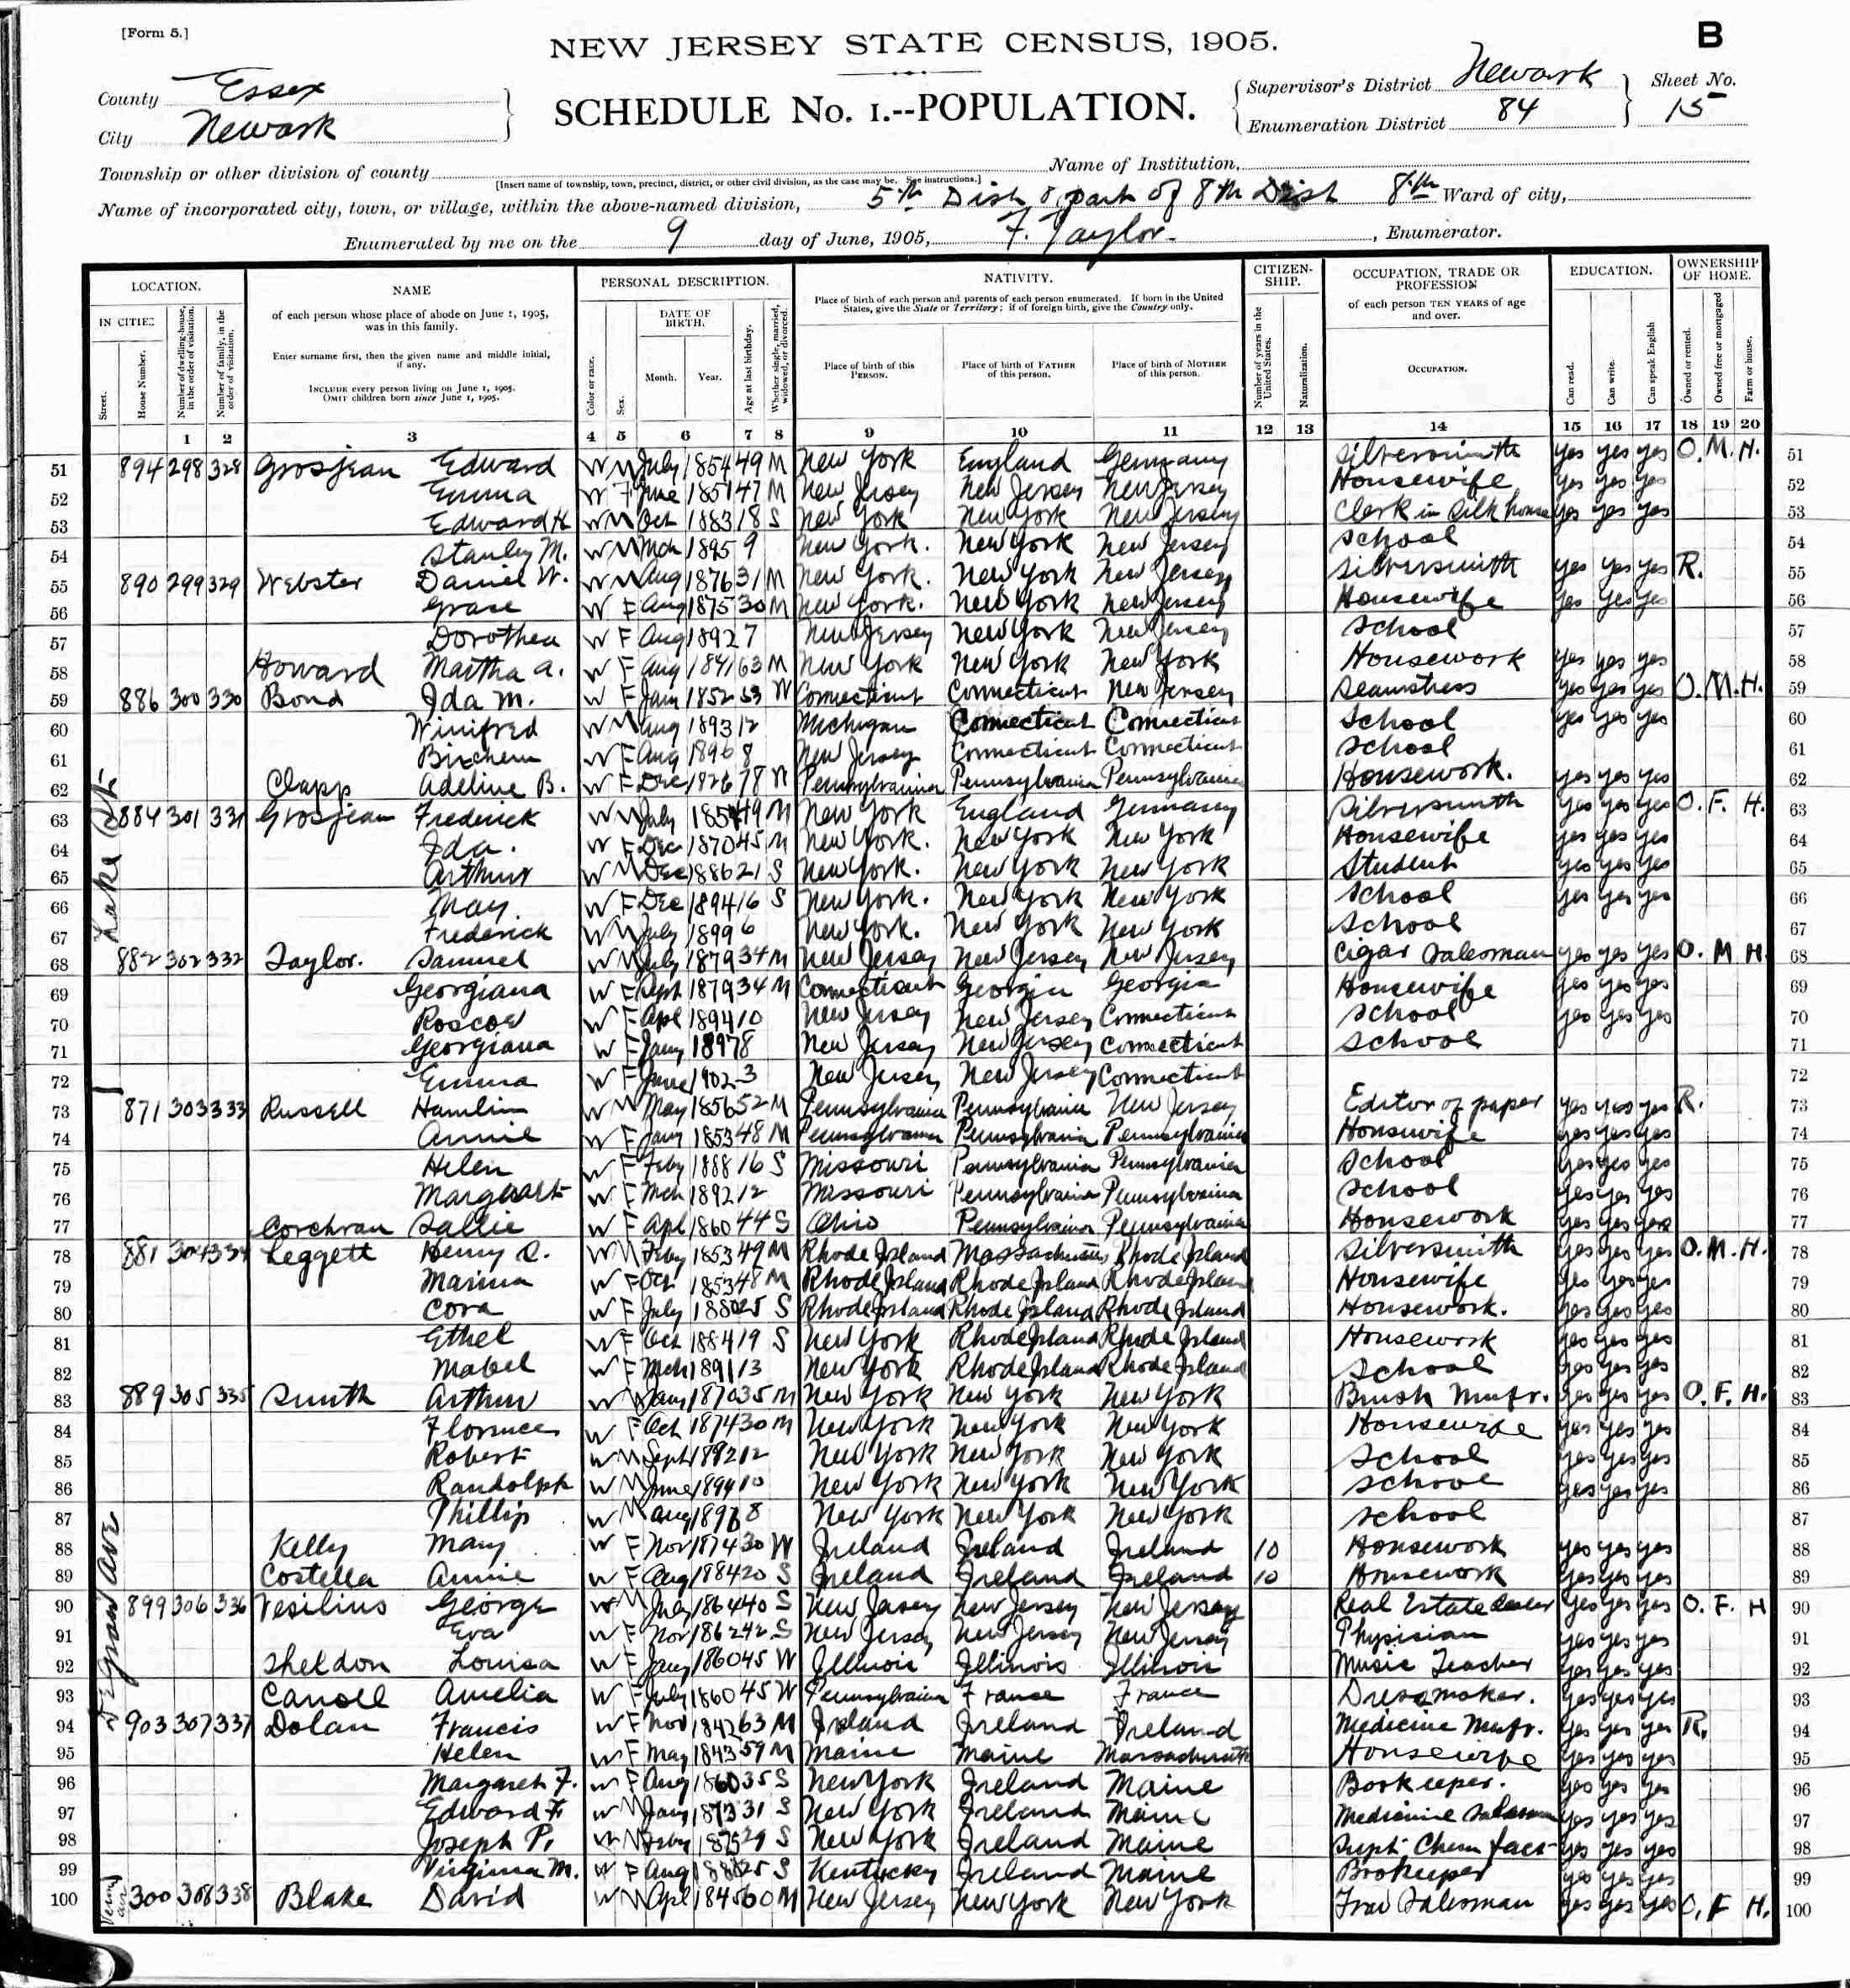 [Form 5.]
B
NEW JERSEY STATE CENSUS, 1905.
SCHEDULE No. 1.--POPULATION.
County Essex
City Newark
Supervisor's District Newark
Enumeration District 84
Sheet No. 15
Township or other division of county
Name of Institution,
[Insert name of township, town, precinct, district, or other civil division, as the case may be. See instructions.]
Name of incorporated city, town, or village, within the above-named division, 5th Dist & part of 8th Dist 8th Ward of city,
Enumerated by me on the 9 day of June, 1905, F. Taylor. , Enumerator.
LOCATION. NAME PERSONAL DESCRIPTION. NATIVITY. CITIZENSHIP. OCCUPATION, TRADE OR PROFESSION EDUCATION. OWNERSHIP OF HOME.
IN CITIES
Street.
House Number.
Number of dwelling-house, in the order of visitation.
Number of family, in the order of visitation.
of each person whose place of abode on June 1, 1905, was in this family.
Enter surname first, then the given name and middle initial, if any.
INCLUDE every person living on June 1, 1905.
OMIT children born since June 1, 1905.
Color or race.
Sex.
DATE OF BIRTH.
Month. Year.
Age at last birthday.
Whether single, married, widowed, or divorced.
Place of birth of each person and parents of each person enumerated. If born in the United States, give the State or Territory; if of foreign birth, give the Country only.
Place of birth of this PERSON.
Place of birth of FATHER of this person.
Place of birth of MOTHER of this person.
Number of years in the United States.
Naturalization.
of each person TEN YEARS of age and over.
OCCUPATION.
Can read.
Can write.
Can speak English
Owned or rented.
Owned free or mortgaged
Farm or house.
1 2 3 4 5 6 7 8 9 10 11 12 13 14 15 16 17 18 19 20
51 894 298 328 Grosjean Edward W M July 1854 49 M New York England Germany Silversmith yes yes yes O. M. H. 51
52 Emma W F June 1857 47 M New Jersey New Jersey New Jersey Housewife yes yes yes 52
53 Edward H W M Oct 1883 18 S New York New York New Jersey Clerk in Silk house yes yes yes 53
54 Stanley M. W M Mch 1895 9 New York. New York New Jersey School 54
55 890 299 329 Webster Daniel W. W M Aug 1876 31 M New York. New York New Jersey Silversmith yes yes yes R. 55
56 Grace W F Aug 1875 30 M New York. New York New Jersey Housewife yes yes yes 56
57 Dorothea W F Aug 1892 7 New Jersey New York New Jersey School 57
58 Howard Martha A. W F Aug 1841 63 M New York New York New York Housework yes yes yes 58
59 886 300 330 Bond Ida M. W F Jany 1852 53 W Connecticut Connecticut New Jersey Seamstress yes yes yes O. M. H. 59
60 Winifred W M Aug 1893 12 Michigan Connecticut Connecticut School yes yes yes 60
61 W F Aug 1896 8 New Jersey Connecticut Connecticut School 61
62 Clapp Adeline B. W F Dec 1826 78 W Pennsylvania Pennsylvania Pennsylvania Housework. yes yes yes 62
Lake St.
63 884 301 331 Grosjean Frederick W M July 1854 49 M New York England Germany Silversmith yes yes yes O. F. H. 63
64 Ida. W F Dec 1870 45 M New York. New York New York Housewife yes yes yes 64
65 Arthur W M Dec 1886 21 S New York. New York New York Student yes yes yes 65
66 May. W F Dec 1894 16 S New York. New York New York School yes yes yes 66
67 Frederick W M July 1899 6 New York. New York New York School 67
68 882 302 332 Taylor. Samuel W M July 1879 34 M New Jersey New Jersey New Jersey Cigar Salesman yes yes yes O. M H. 68
69 Georgiana W F Sept 1879 34 M Connecticut Georgia Georgia Housewife yes yes yes 69
70 Roscoe W F Apl 1894 10 New Jersey New Jersey Connecticut School yes yes yes 70
71 Georgiana W F Jany 1897 8 New Jersey New Jersey Connecticut School 71
72 Emma W F June 1902 3 New Jersey New Jersey Connecticut 72
73 871 303 333 Russell Hamlin W M May 1856 52 M Pennsylvania Pennsylvania New Jersey Editor of paper yes yes yes R. 73
74 Annie W F Jany 1853 48 M Pennsylvania Pennsylvania Pennsylvania Housewife yes yes yes 74
75 Helen W F Feby 1888 16 S Missouri Pennsylvania Pennsylvania School yes yes yes 75
76 Margaret W F Mch 1892 12 Missouri Pennsylvania Pennsylvania School yes yes yes 76
77 Corchran Sallie W F Apl 1860 44 S Ohio Pennsylvania Pennsylvania Housework yes yes yes 77
78 881 304 334 Leggett Henry W M Feby 1853 49 M Rhode Island Massachusetts Rhode Island Silversmith yes yes yes O. M. H. 78
79 Marina W F Oct 1853 48 M Rhode Island Rhode Island Rhode Island Housewife yes yes yes 79
80 Cora W F July 1880 25 S Rhode Island Rhode Island Rhode Island Housework. yes yes yes 80
81 Ethel W F Oct 1884 19 S New York Rhode Island Rhode Island Housework yes yes yes 81
82 Mabel W F Mch 1891 13 New York Rhode Island Rhode Island School yes yes yes 82
83 889 305 335 Smith Arthur W M Jany 1870 35 M New York New York New York Brush Mnfr. yes yes yes O. F. H. 83
84 Florence W F Oct 1874 30 M New York New York New York Housewife yes yes yes 84
85 Robert W M Sept 1892 12 New York New York New York School yes yes yes 85
86 Randolph W M June 1894 10 New York New York New York School yes yes yes 86
87 Phillip W M Aug 1897 8 New York New York New York School 87
88 Kelly Mary W F Nov 1874 30 W Ireland Ireland Ireland 10 Housework yes yes yes 88
89 Costella Annie W F Aug 1884 20 S Ireland Ireland Ireland 10 Housework yes yes yes 89
Degraw Ave
90 899 306 336 Vesilius George W M July 1864 40 S New Jersey New Jersey New Jersey Real Estate dealer yes yes yes O. F. H 90
91 Eva W F Nov 1862 42 S New Jersey New Jersey New Jersey Physician yes yes yes 91
92 Sheldon Louisa W F Jany 1860 45 W Illinois Illinois Illinois Music Teacher yes yes yes 92
93 Caroll Amelia W F July 1860 45 W Pennsylvania France France Dressmaker. yes yes yes 93
94 903 307 337 Dolan Francis W F Nov 1842 63 M Ireland Ireland Ireland Medicine Mnfr. yes yes yes R. 94
95 Helen W F May 1843 59 M Maine Maine Massachusetts Housewife yes yes yes 95
96 Margaret F. W F Aug 1860 35 S New York Ireland Maine Bookeeper. yes yes yes 96
97 Edward F. W M Jany 1873 31 S New York Ireland Maine Medicine Salesman yes yes yes 97
98 Joseph P. W M Feby 1875 29 S New York Ireland Maine Supt. Chem fact yes yes yes 98
99 Virginia M. W F Aug 1880 25 S Kentucky Ireland Maine Bookeeper yes yes yes 99
100 300 308 338 Blake David W M Apl 1845 60 M New Jersey New York New York Trav Salesman yes yes yes O. F H. 100